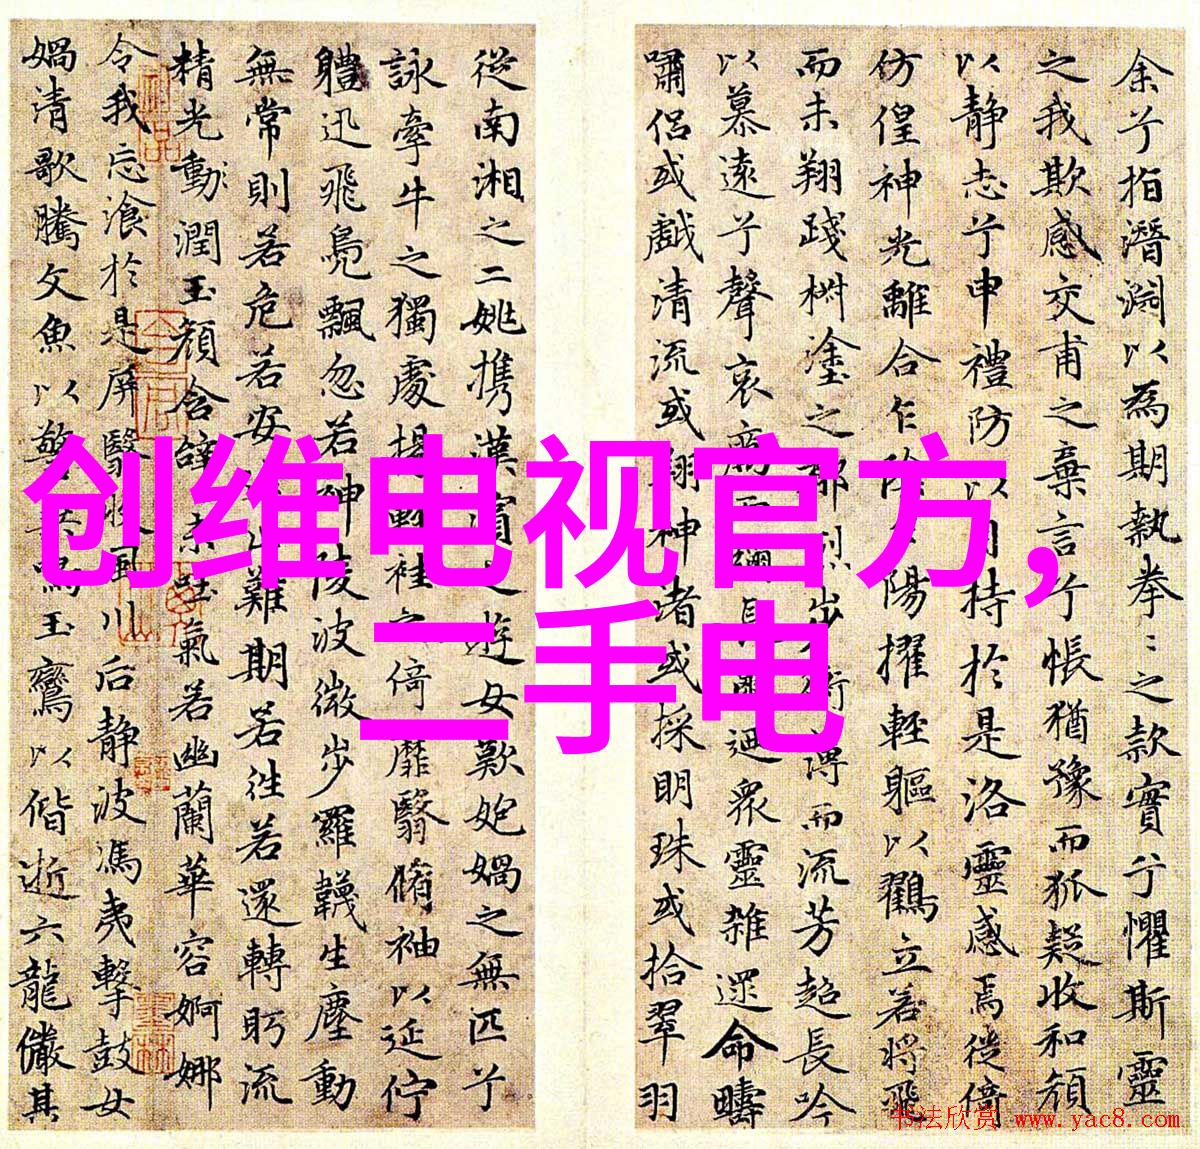 余兮指潛淵以為期執拳〻之款實兮懼斯靈
之我欺感交甫之棄言兮悵猶豫而狐疑收和顏
以静志兮申禮防以自持於是洛靈感焉徙倚
仿偟神光離合乍陰乍陽擢輕軀以鶴立若將飛
而未翔踐椒塗之郁烈步蘅薄而流芳超長吟
以慕遠兮聲哀厲而彌長爾迺衆靈雜遝命疇
嘯侶或戲清流或翔神渚或採明珠或拾翠羽
從南湘之二姚携漢濱之遊女歎妑媧之無匹兮
詠牽牛之獨處揚輕袿之倚靡翳脩袖以延佇
體迅飛鳧飄忽若神陵波微步羅韈生塵動
無常則若危若安進止難期若往若還轉眄流
精光動潤玉顏含辭未吐氣若幽蘭華容婀娜
令我忘飡於是屏翳收風川后静波馮夷擊鼓女
媧清歌騰文魚以警乘鳴玉鸞以偕逝六龍儼其
创维电视官方,
二手电
书法欣赏 www.yac8.com